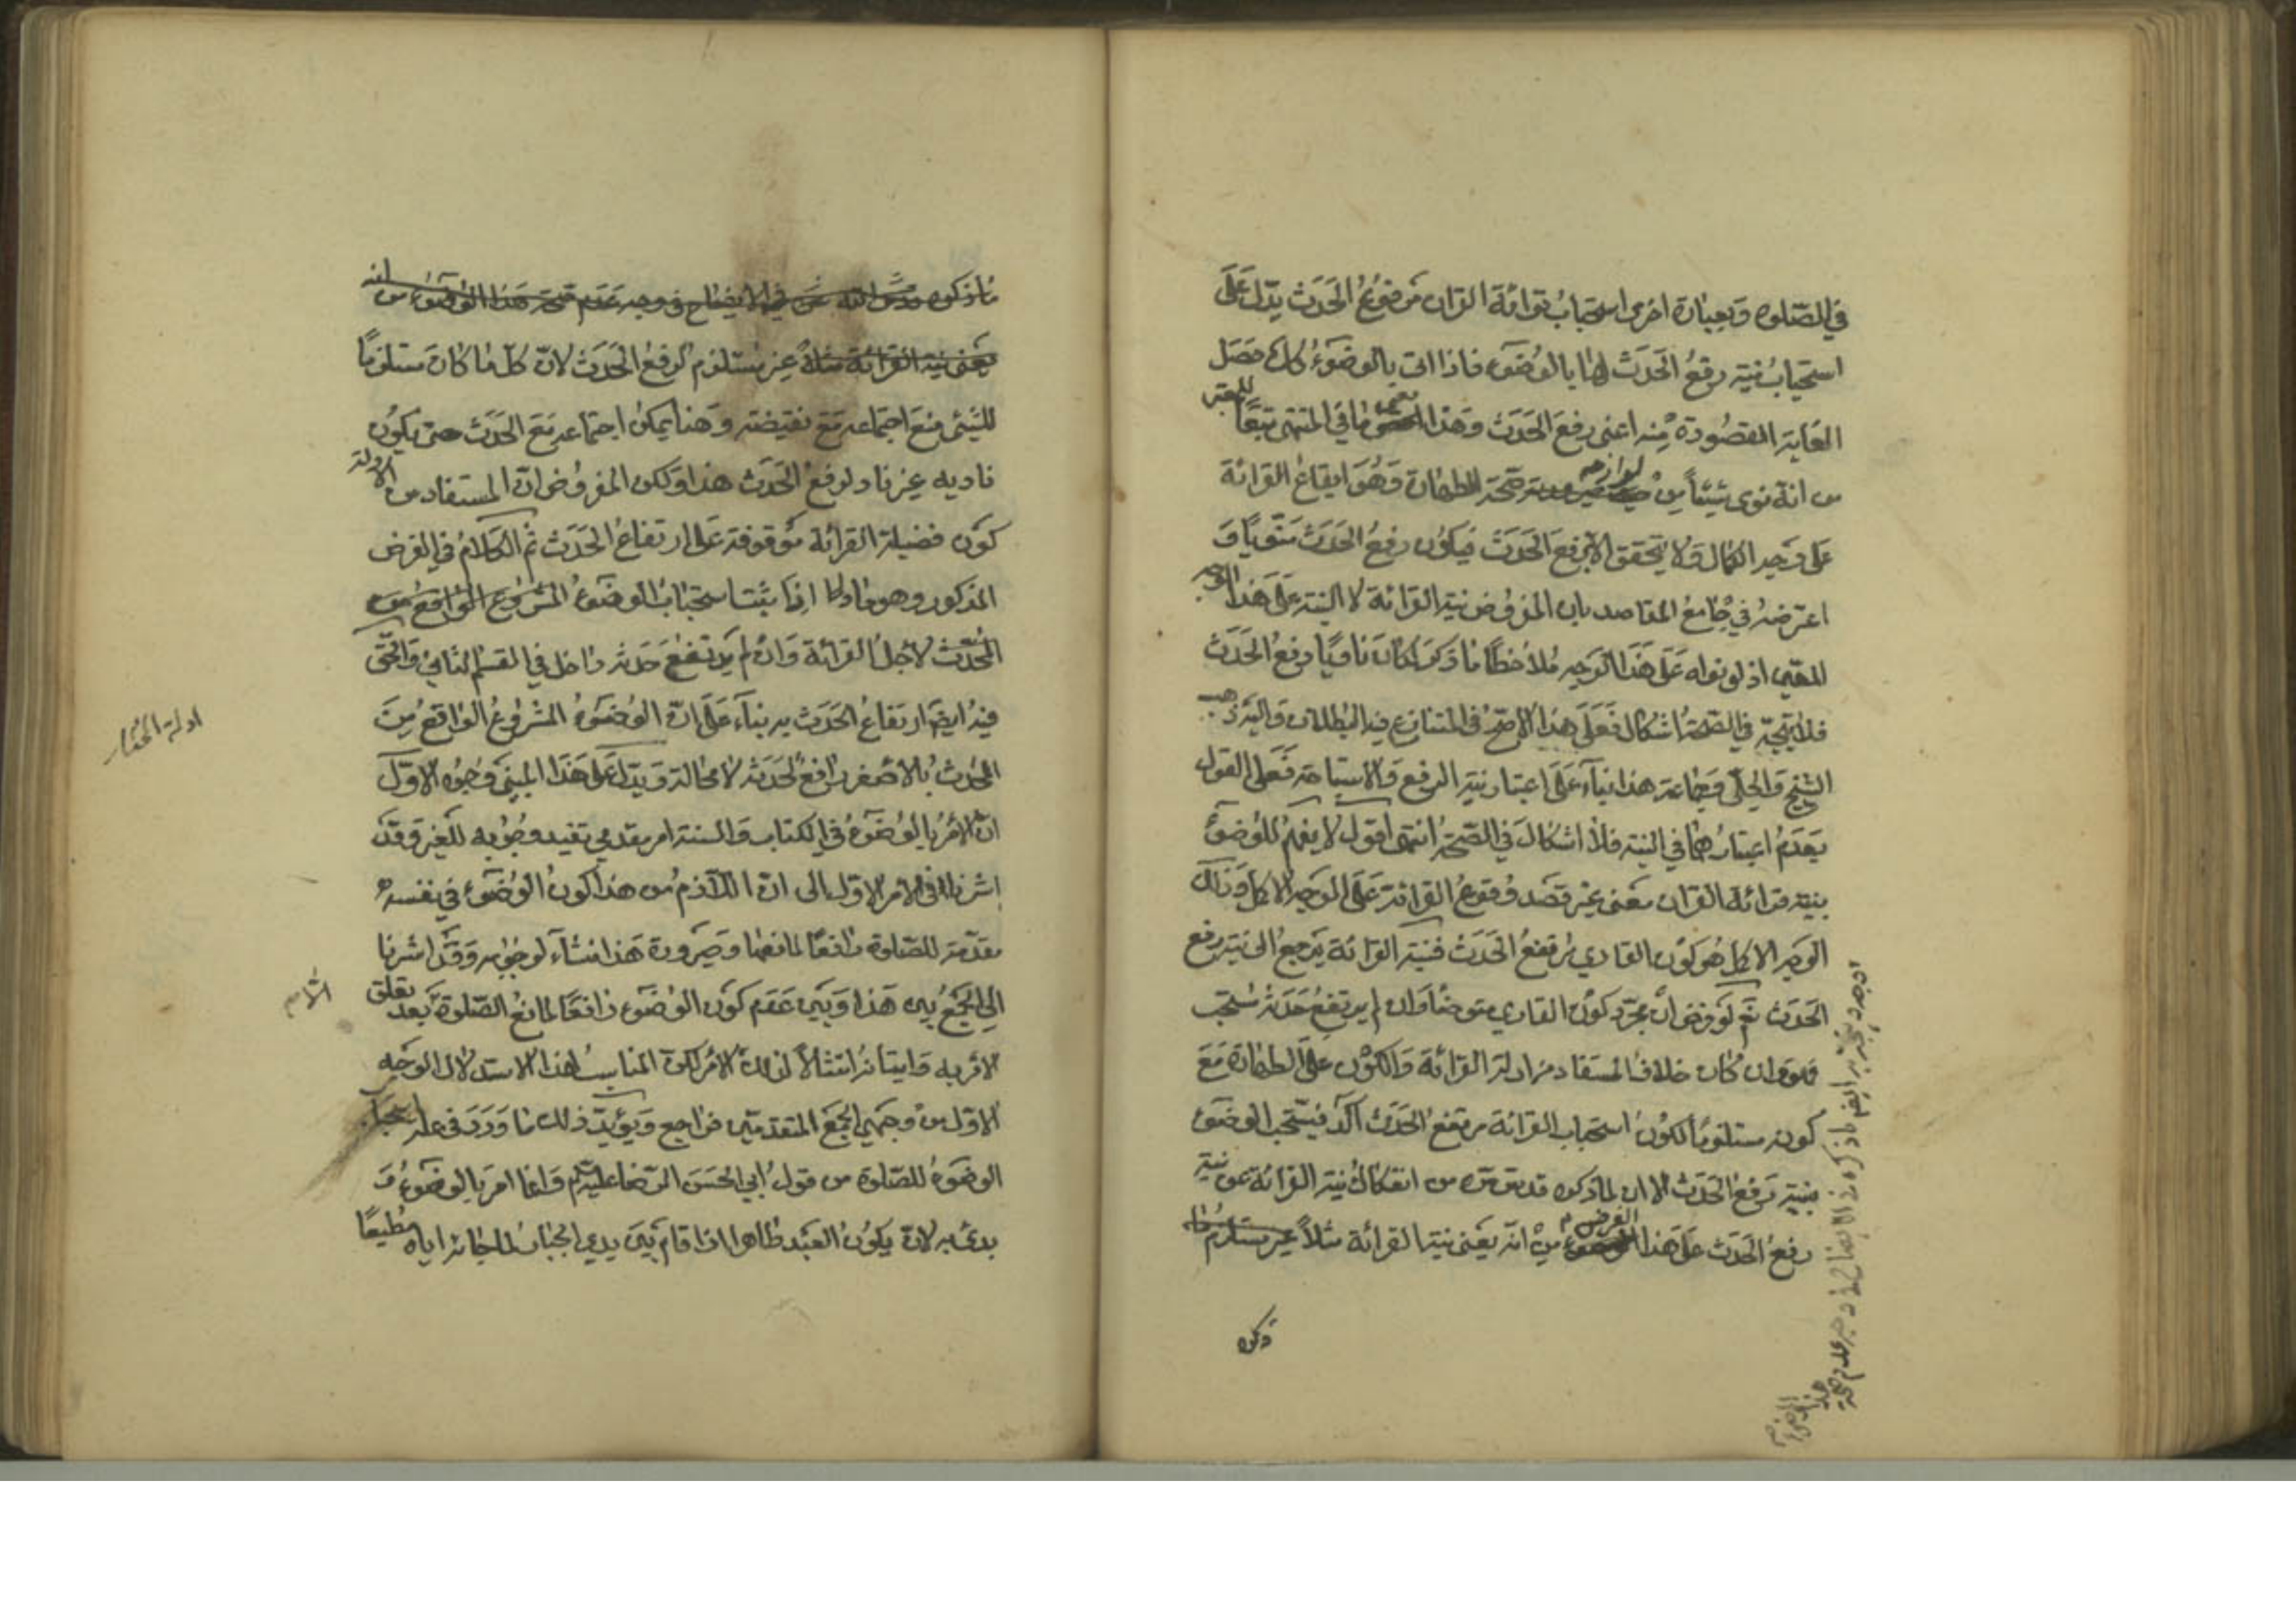 في الصّلوة وبعبارة اخرى استحباب قرائة القران مرفوع الحدث يدّل على
استحباب نيّة رفع الحدث لها بالوضوء فاذا اتى بالوضوء كل حصل
الغاية المقصودة منه اعنى رفع الحدث وهذا معنى ما في المنتهى تبعًا للمعتبر
من انّه نوى شيئاً من لوازمه صحّة الطهارة وهو ايقاع القرائة
على وجه الكمال ولا يتحقق الا برفع الحدث فيكون رفع الحدث منويًّا و
اعترضه في جامع المقاصد بان المفروض نية القرائة لا النية على هذا الوجه
المعيّن اذ لو نواه على هذا الوجه ملاحظًا ما ذكر لكان ناويًا رفع الحدث
فلا يتجّه في الصّحة اشكال فعلى هذا الاصحّ في المتنازع فيه البطلان واليه ذهب
الشيخ والحلّي وجماعة هذا بناءً على اعتبار نية الرفع والاستباحة فعلى القول
بعدم اعتبارهما في النية فلا اشكال في الصّحّة انتهى اقول لا يفهم للوضوء
بنية قرائة القران معنى غير قصد وقوع القرائة على الوجه الاكمل وذلك
الوجه الاكمل هو كون القارى مرتفع الحدث فنية القرائة يرجع الى نية رفع
الحدث نعم لو فرض ان مجرّد كون القارى متوضأ وان لم يرتفع حدثه مستحب
فهو وان كان خلاف المستفاد من ادلة القرائة والكون على الطهارة مع
كونه مستلزمًا لكون استحباب القرائة مرتفع الحدث آكد فيستحب الوضوء
بنية رفع الحدث الا ان لما ذكره قدس سره من انفكاك نية القرائة عن نية
رفع الحدث على هذا الفرض من انّه يعنى نية القرائة مثلاً غير مستلزم
ذكره
ما ذكره في الايضاح في وجه عدم صحّة هذا الوضوء من انّه
يعنى نية القرائة مثلاً غير مستلزم لرفع الحدث لانّ كلّ ما كان مستلزمًا
للشيئ منع اجتماعه مع نقيضه وهنا يمكن اجتماعه مع الحدث حتى يكون
ناويه غير ناو لرفع الحدث هذا ولكن المفروض انّ المستفاد من الادلة
كون فضيلة القرائة موقوفة على ارتفاع الحدث ثم الكلام في الفرض
المذكور وهو ما اذا ثبت استحباب الوضوء المشروع الواقع من
المحدث لاجل القرائة وان لم يرتفع حدثه داخل في القسم الثاني والحق
فيه ايضا ارتفاع الحدث به بناءً على انّ الوضوء المشروع الواقع من
المحدث بالاصغر رافع لحدثه لا محالة ويدّل على هذا المبنى وجوه الاوّل
انّ الامر بالوضوء في الكتاب والسنة امر مقدمي تفيد وجوبه للغير وقد
اشرنا في الامر الاول الى ان اللازم من هذا كون الوضوء في نفسه
مقدّمة للصّلوة رافعًا لمانعها وصيرورة هذا منشاء لوجوبه وقد اشرنا
الى الجمع بين هذا وبين عدم كون الوضوء رافعًا لمانع الصّلوة بعد تعلق
الامر به واتيانه امتثالاً لذلك الامر لكن المناسب لهذا الاستدلال الوجه
الاوّل من وجهي الجمع المتقدمين فراجع ويؤيّد ذلك ما ورد في علة
الوضوء للصّلوة من قول ابي الحسن الرّضا عليه السّلام وانما امر بالوضوء و
بدئ به لان يكون العبد طاهرا اذا قام بين يدي الجبار مطيعًا
ادلة المختار